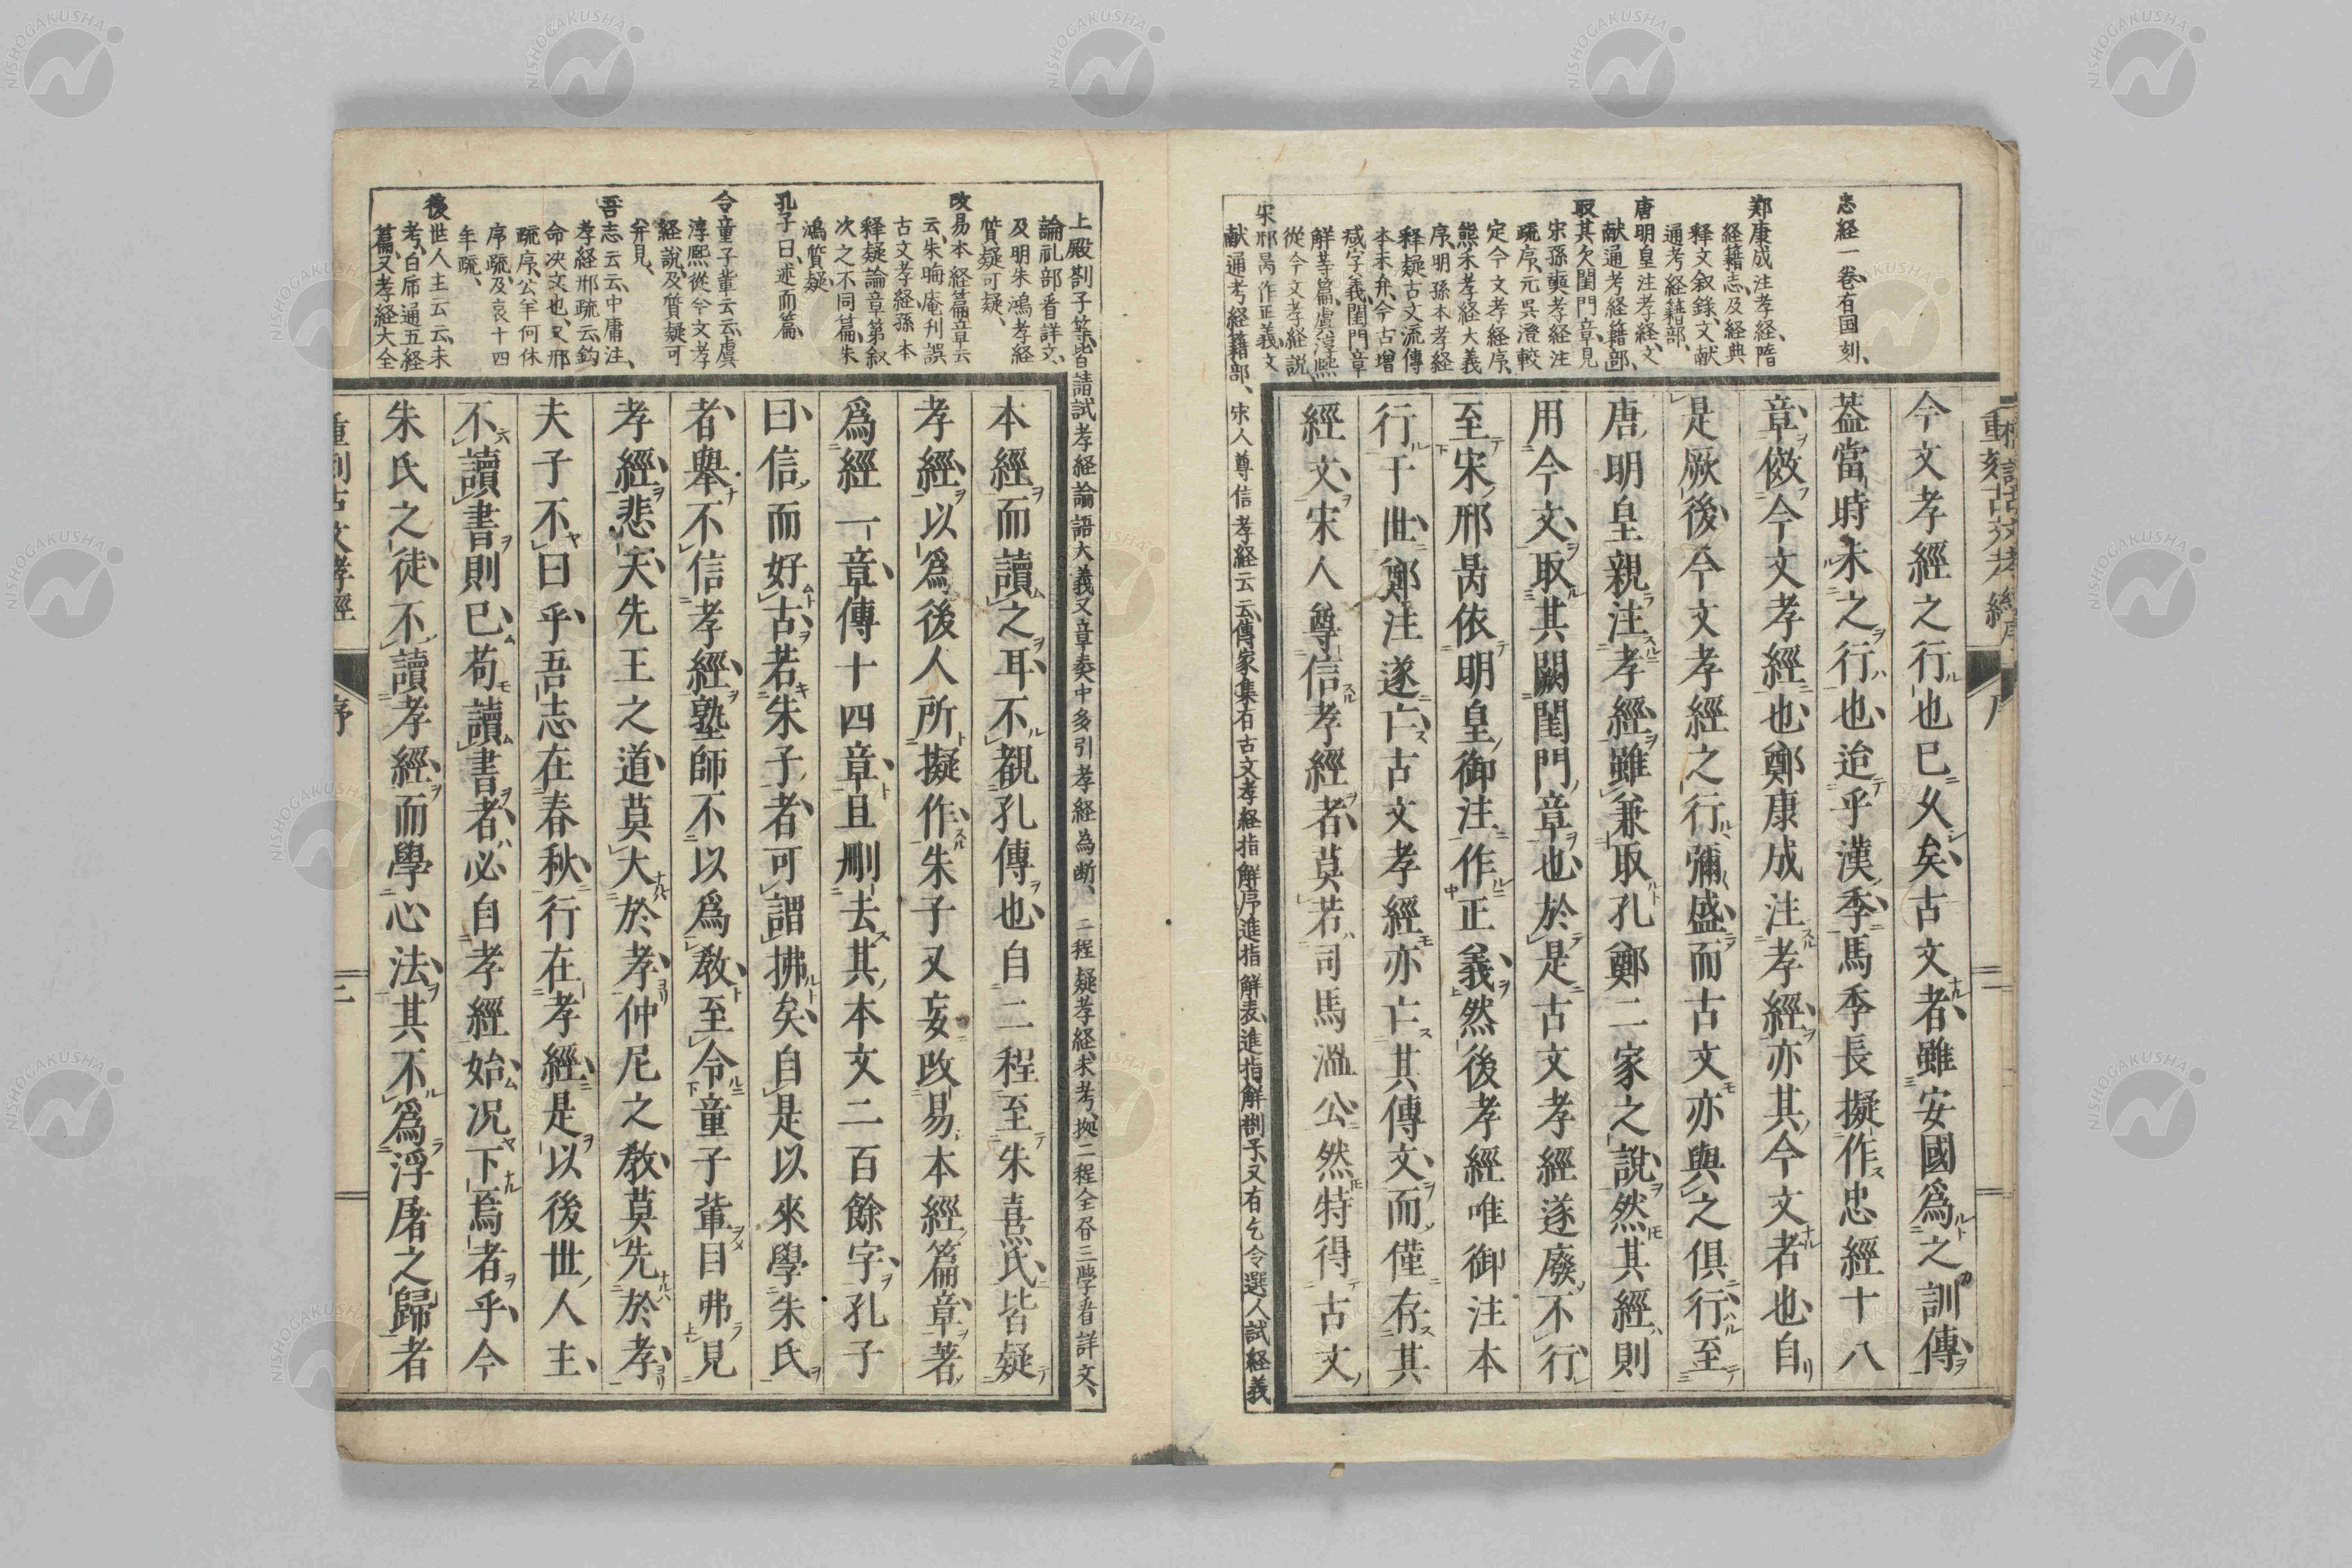 志経一卷、有国刻、
鄭康成注孝経、隋
経籍志、及経典
釈文叙録、文献
通考経籍部、
唐明皇注孝経、文
献通考経籍部、
取其欠閨門章、見
宋孫奭孝経注
疏序、元呉澄較
定今文孝経序、
熊禾孝経大義
序、明孫本孝経
釈疑古文流傳
本末弁、今古増
减字義、閨門章
解等篇、虞淳熈
從今文孝経説、
宋邢昺作正義、文
献通考経籍部、
宋人尊信孝経云云、傳家集有古文孝経指解序進指解表、進指解劄子、又有乞令選人試経義
今文孝經之行也已久矣、古文者、雖安國爲之訓傳、
葢當時未之行也、迨乎漢季、馬季長擬作忠經十八
章、倣今文孝經也、鄭康成注孝經、亦其今文者也、自
是厥後、今文孝經之行彌盛、而古文亦與之俱行、至
唐明皇親注孝經、雖兼取孔鄭二家之說、然其經則
用今文、取其闕閨門章也、於是古文孝經遂廢不行、
至宋邢昺依明皇御注、作正義、然後孝經唯御注本
行于世、鄭注遂亡、古文孝經亦亡其傳文、而僅存其
經文、宋人尊信孝經者、莫若司馬溫公、然特得古文
上殿劄子等、皆請試孝経論語大義又章奏中多引孝経為断、二程疑孝経、未考、按二程全昏三學者詳文、
論礼部看詳文、
及明朱鴻孝経
質疑可疑、
改易本経篇章云
云、朱晦庵刋誤
古文孝経孫本
釈疑論章第叙
次之不同篇、朱
鴻質疑、
孔子曰、述而篇、
令童子輩云云、虞
淳熈從今文孝
経説、及質疑可
弁見、
吾志云云、中庸注、
孝経邢疏云、鈎
命决文也、又邢
疏序、公羊何休
序疏、及哀十四
年疏、
後世人主云云、未
考、白席通五経
篇、又孝経大全
本經而讀之耳、不覩孔傳也、自二程至朱熹氏、皆疑
孝經、以爲後人所擬作、朱子又妄改易本經篇章、著
爲經一章、傳十四章、且刪去其本文二百餘字、孔子
曰、信而好古、若朱子者、可謂拂矣、自是以來學朱氏
者、舉不信孝經、塾師不以爲敎、至令童子輩目弗見
孝經、悲夫、先王之道、莫大於孝、仲尼之敎、莫先於孝、
夫子不曰乎、吾志在春秋、行在孝經、是以後世人主、
不讀書則已、苟讀書者、必自孝經始、况下焉者乎、今
朱氏之徒、不讀孝經、而學心法、其不爲浮屠之歸者
重刻古文孝經　序　二